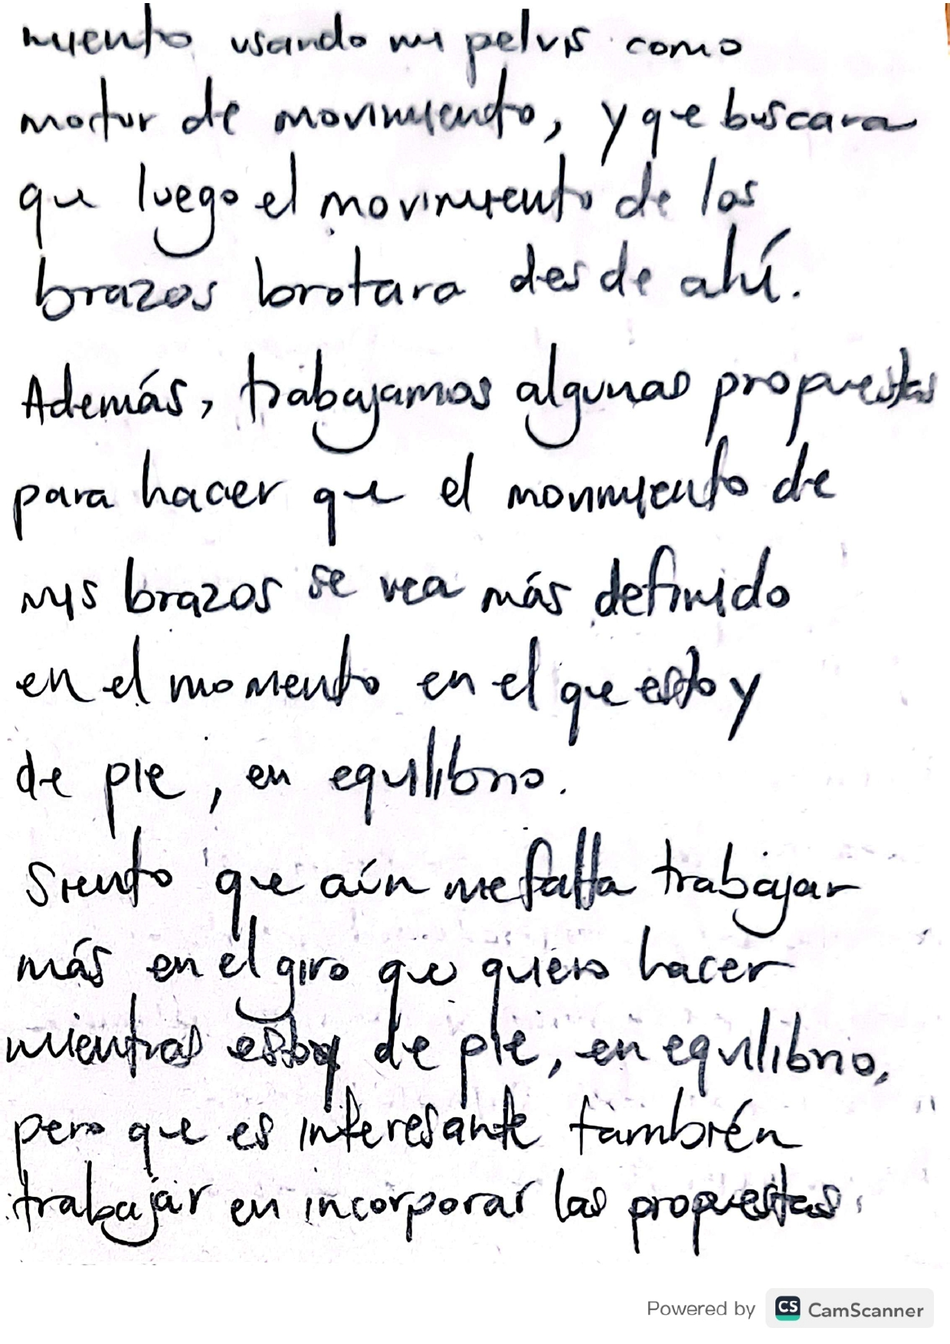 miento usando mi pelvis como
motor de movimiento, y que buscara
que luego el movimiento de los
brazos brotara desde ahí.
Además, trabajamos algunas propuestas
para hacer que el movimiento de
mis brazos se vea más definido
en el momento en el que estoy
de pie, en equilibrio.
Siento que aún me falta trabajar
más en el giro que quiero hacer
mientras estoy de pie, en equilibrio,
pero que es interesante también
trabajar en incorporar las propuestas.
Powered by CS CamScanner